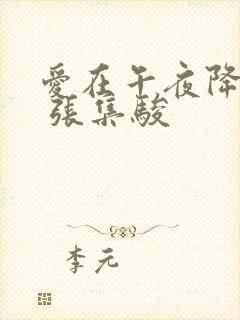 愛在午夜降
張集駿
李元